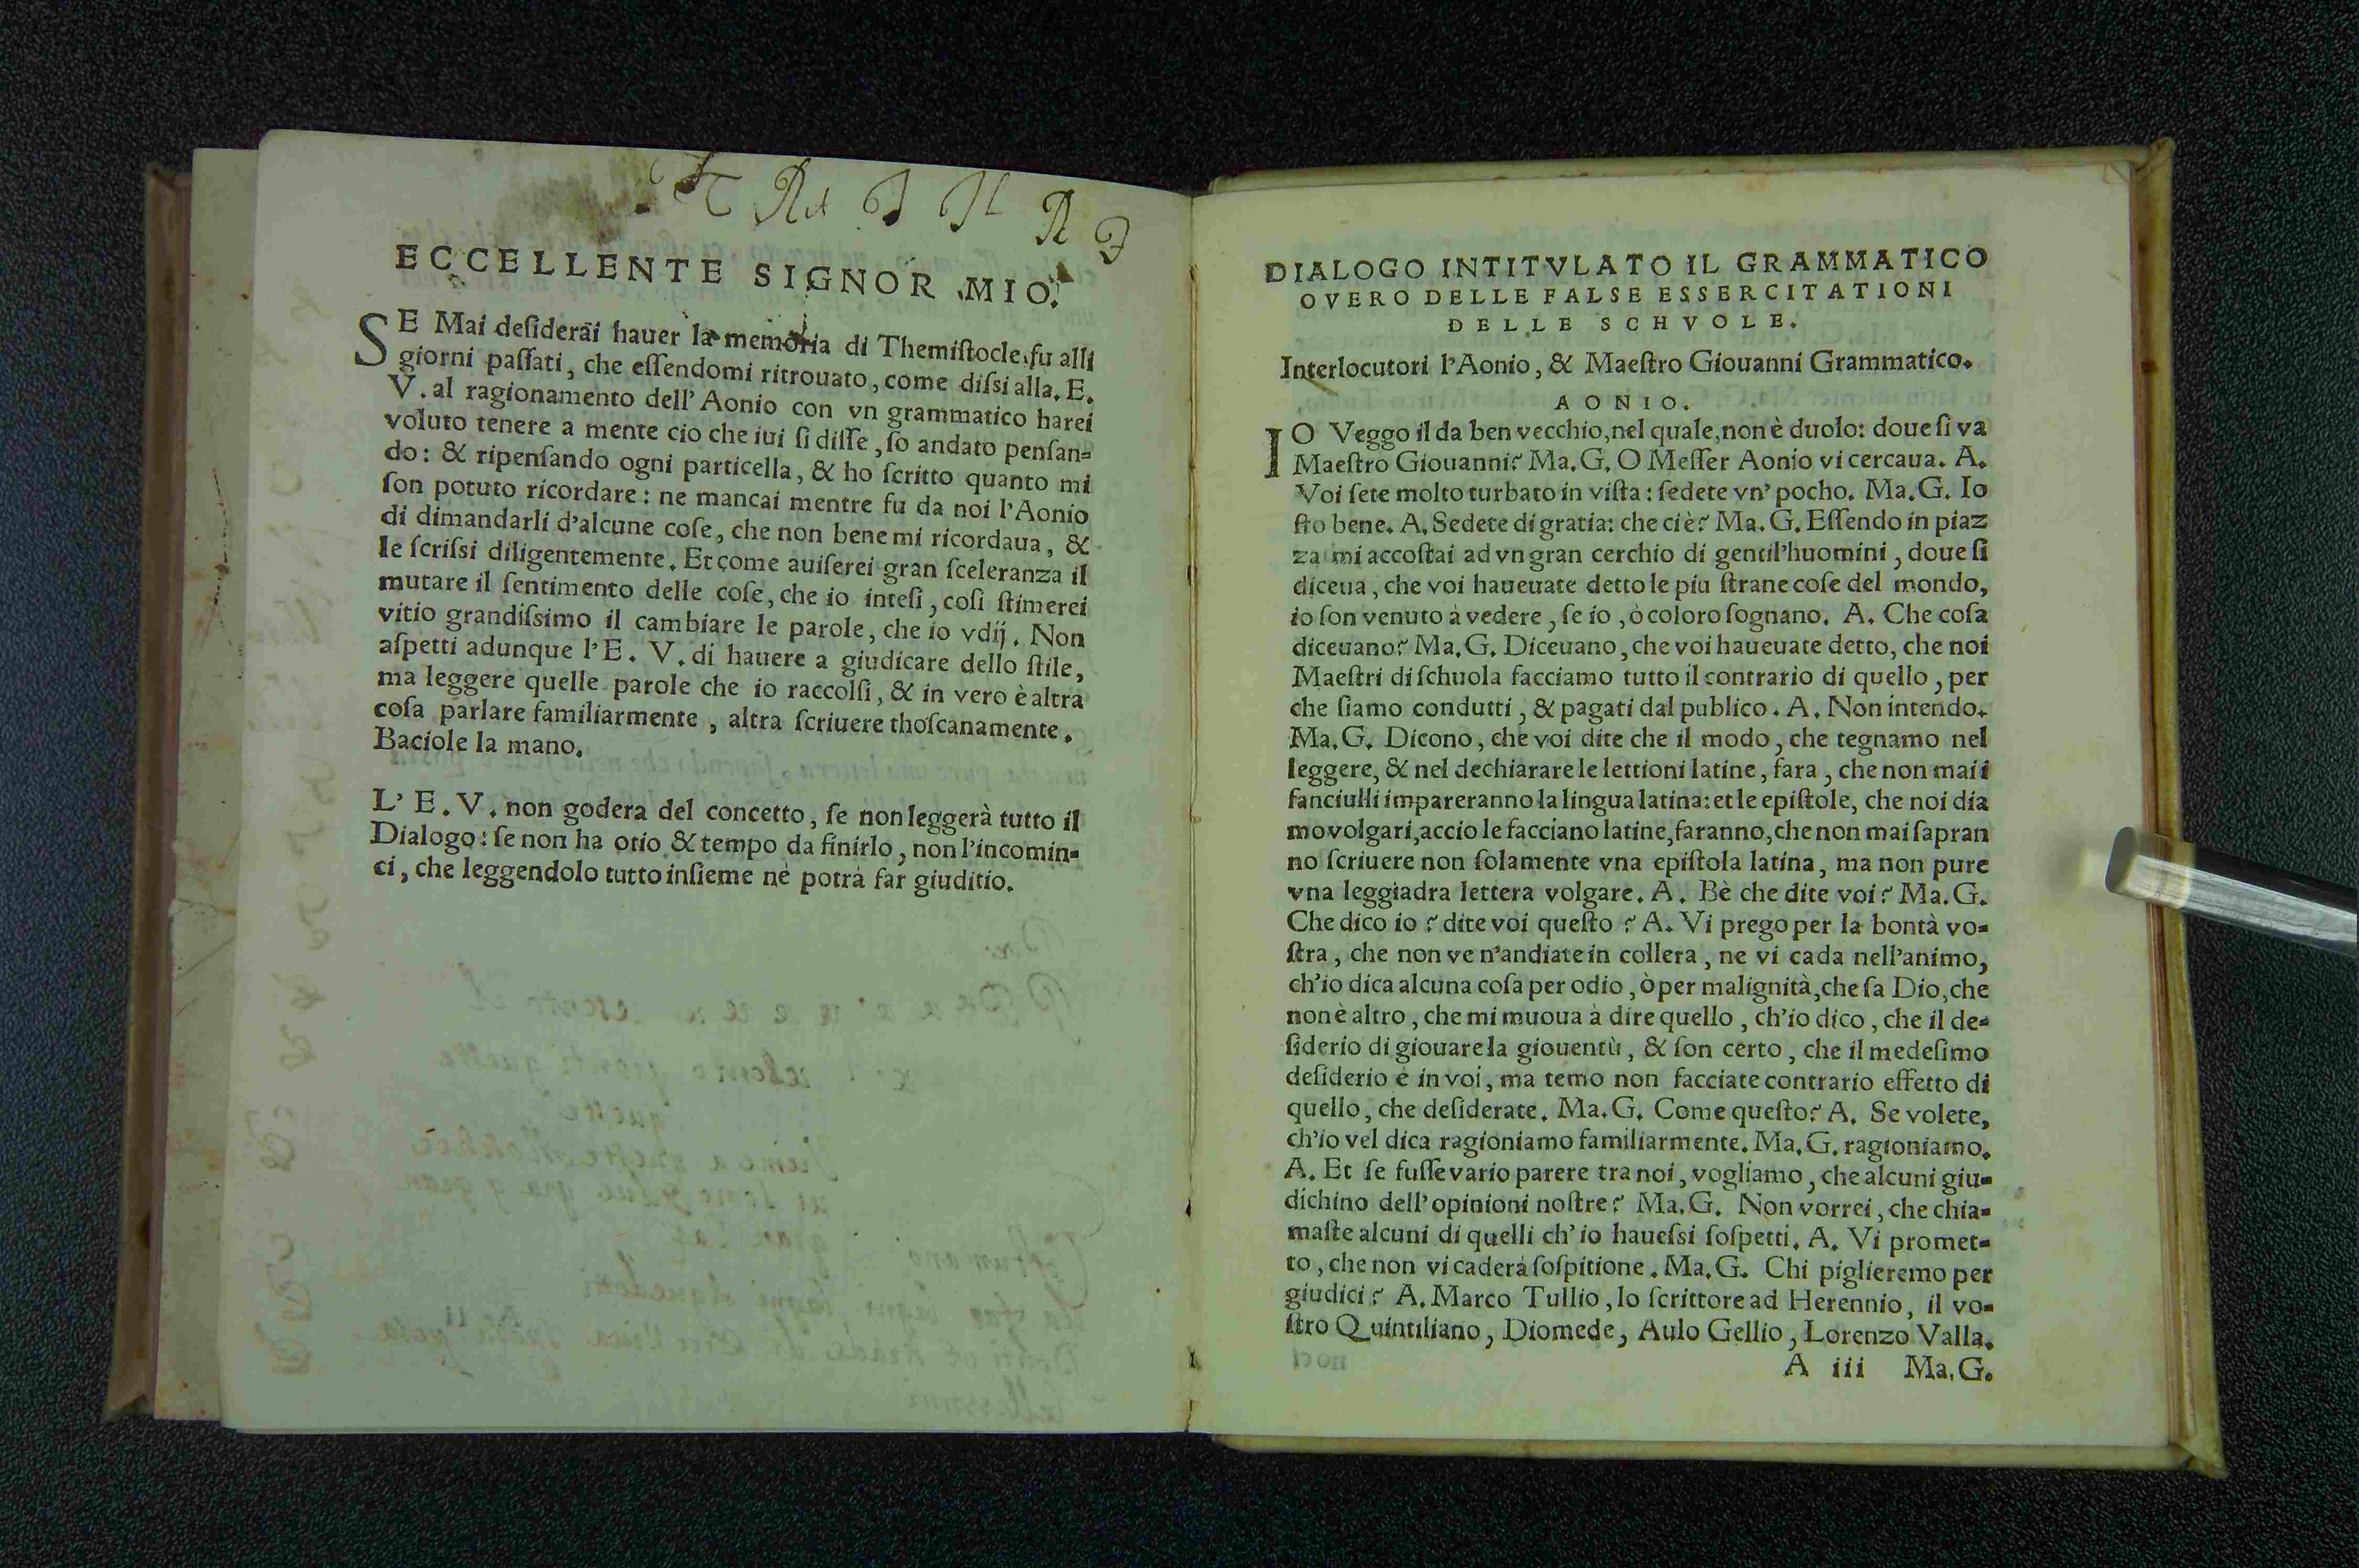 ECCELLENTE SIGNOR MIO.
SE Mai deſiderai hauer la memoria di Themiſtocle, fu alli
giorni paſſati, che eſſendomi ritrouato, come diſsi alla. E.
V. al ragionamento dell' Aonio con vn grammatico harei
voluto tenere a mente cio che iui ſi diſſe, ſo andato penſan-
do: & ripenſando ogni particella, & ho ſcritto quanto mi
ſon potuto ricordare: ne mancai mentre fu da noi l'Aonio
di dimandarli d'alcune coſe, che non bene mi ricordaua, &
le ſcriſsi diligentemente. Et come auiſerei gran ſceleranza il
mutare il ſentimento delle coſe, che io inteſi, coſi ſtimerei
vitio grandiſsimo il cambiare le parole, che io vdij. Non
aſpetti adunque l'E. V. di hauere a giudicare dello ſtile,
ma leggere quelle parole che io raccolſi, & in vero è altra
coſa parlare familiarmente, altra ſcriuere thoſcanamente.
Baciole la mano.
L' E. V. non godera del concetto, ſe non leggerà tutto il
Dialogo: ſe non ha otio & tempo da finirlo, non l'incomin-
ci, che leggendolo tutto inſieme ne potrà far giuditio.
DIALOGO INTITVLATO IL GRAMMATICO
OVERO DELLE FALSE ESSERCITATIONI
DELLE SCHVOLE.
Interlocutori l'Aonio, & Maeſtro Giouanni Grammatico.
AONIO.
IO Veggo il da ben vecchio, nel quale, non è duolo: doue ſi va
Maeſtro Giouanni? Ma. G. O Meſſer Aonio vi cercaua. A.
Voi ſete molto turbato in viſta: ſedete vn' pocho. Ma. G. Io
ſto bene. A. Sedete di gratia: che ci è? Ma. G. Eſſendo in piaz
za mi accoſtai ad vn gran cerchio di gentil'huomini, doue ſi
diceua, che voi haueuate detto le piu ſtrane coſe del mondo,
io ſon venuto à vedere, ſe io, ò coloro ſognano. A. Che coſa
diceuano? Ma. G. Diceuano, che voi haueuate detto, che noi
Maeſtri di ſchuola facciamo tutto il contrario di quello, per
che ſiamo condutti, & pagati dal publico. A. Non intendo.
Ma. G. Dicono, che voi dite che il modo, che tegnamo nel
leggere, & nel dechiarare le lettioni latine, fara, che non mai i
fanciulli impareranno la lingua latina: et le epiſtole, che noi dia
mo volgari, accio le facciano latine, faranno, che non mai ſapran
no ſcriuere non ſolamente vna epiſtola latina, ma non pure
vna leggiadra lettera volgare. A. Bè che dite voi? Ma. G.
Che dico io? dite voi queſto? A. Vi prego per la bontà vo-
ſtra, che non ve n'andiate in collera, ne vi cada nell'animo,
ch'io dica alcuna coſa per odio, ò per malignità, che ſa Dio, che
non è altro, che mi muoua à dire quello, ch'io dico, che il de-
ſiderio di giouare la giouentù, & ſon certo, che il medeſimo
deſiderio è in voi, ma temo non facciate contrario effetto di
quello, che deſiderate. Ma. G. Come queſto? A. Se volete,
ch'io vel dica ragioniamo familiarmente. Ma. G. ragioniamo.
A. Et ſe fuſſe vario parere tra noi, vogliamo, che alcuni giu-
dichino dell'opinioni noſtre? Ma. G. Non vorrei, che chia-
maſte alcuni di quelli ch'io haueſsi ſoſpetti. A. Vi promet-
to, che non vi caderà ſoſpitione. Ma. G. Chi piglieremo per
giudici? A. Marco Tullio, lo ſcrittore ad Herennio, il vo-
ſtro Quintiliano, Diomede, Aulo Gellio, Lorenzo Valla.
A iii Ma. G.